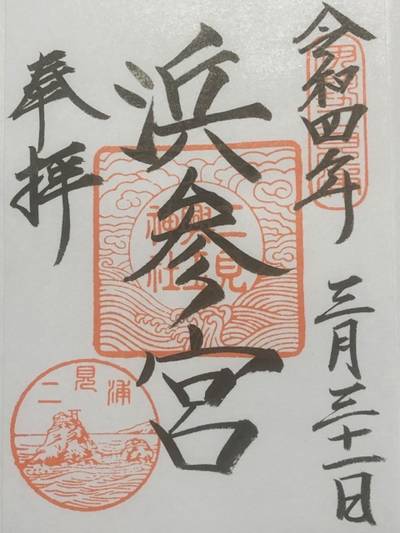 令和四年
三月三十一日
浜参宮
二見興玉神社
奉拝
二見浦